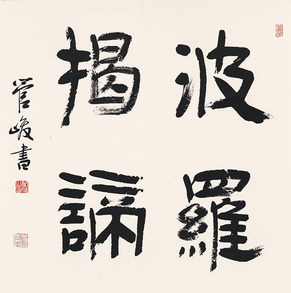 波羅
揭諦
管峻書